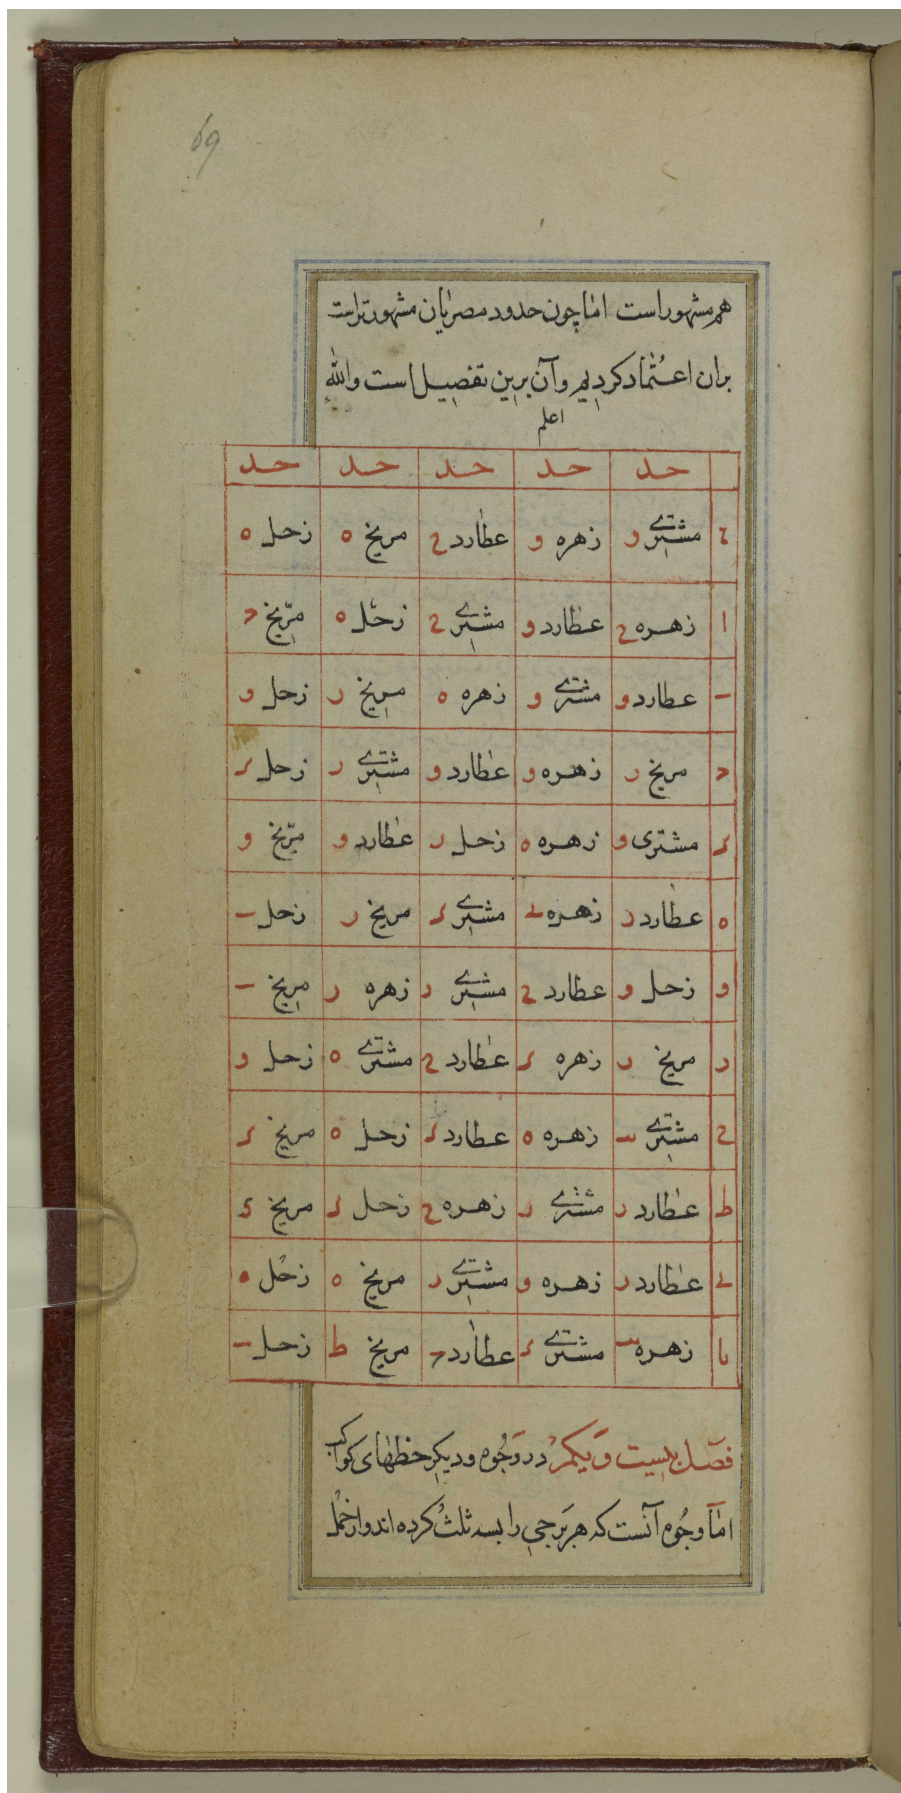 69
هم مشهور است اما چون حدود مصریان مشهورتر است
بران اعتماد کردیم وآن برین تفصیل است والله
اعلم
حد حد حد حد حد
مشتری و زهره و عطارد ح مریخ ه زحل ه
ا زهره ح عطارد و مشتری ح زحل ه مریخ د
ب عطارد و مشتری و زهره ه مریخ ر زحل و
د مریخ ر زهره و عطارد و مشتری ر زحل د
د مشتری و زهره ه زحل ر عطارد و مریخ و
ه عطارد ر زهره ی مشتری د مریخ ر زحل ب
و زحل و عطارد ح مشتری ر زهره ر مریخ ب
ر مریخ ر زهره د عطارد ح مشتری ه زحل و
ح مشتری زهره ه عطارد د زحل ه مریخ د
ط عطارد ر مشتری ر زهره ح زحل د مریخ د
ی عطارد ر زهره و مشتری ر مریخ ه زحل ه
یا زهره مشتری د عطارد مریخ ط زحل ب
فصل بیست ویکم در وجوه ودیکر حظهای کواکب
اما وجوه آنست که هر برجی را بسه ثلث کرده اند واز حمل